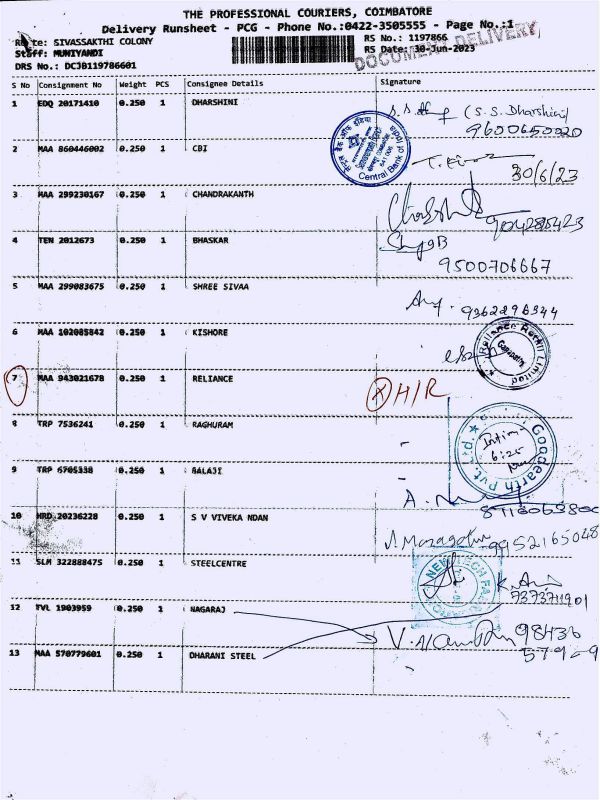 THE PROFESSIONAL COURIERS, COIMBATORE
Delivery Runsheet - PCG - Phone No.:0422-3505555 - Page No.:1
Route: SIVASSAKTHI COLONY
RS No.: 1197866
Staff: MUNIYANDI
RS Date: 30-Jun-2023
DOCUMENT DELIVERY
DRS No.: DCJB119786601
S No Consignment No Weight PCS Consignee Details Signature
1 EDQ 20171410 0.250 1 DHARSHINI
(S.S. Dharshini)
9600650020
2 MAA 860446002 0.250 1 CBI
Central Bank of India
30/6/23
3 MAA 299230167 0.250 1 CHANDRAKANTH
4 TEN 2012673 0.250 1 BHASKAR
9500706667
5 MAA 299083675 0.250 1 SHREE SIVAA
9362296344
6 MAA 102085842 0.250 1 KISHORE
Reliance Retail Limited
7 MAA 943021678 0.250 1 RELIANCE
H/R
8 TRP 7536241 0.250 1 RAGHURAM
Goodearth Pvt. Ltd.
9 TRP 6705338 0.250 1 BALAJI
10 HRD 20236228 0.250 1 S V VIVEKA NDAN
9952165048
11 SLM 322888475 0.250 1 STEELCENTRE
7373711901
12 TVL 1903959 0.250 1 NAGARAJ
98436
57969
13 MAA 570779601 0.250 1 DHARANI STEEL